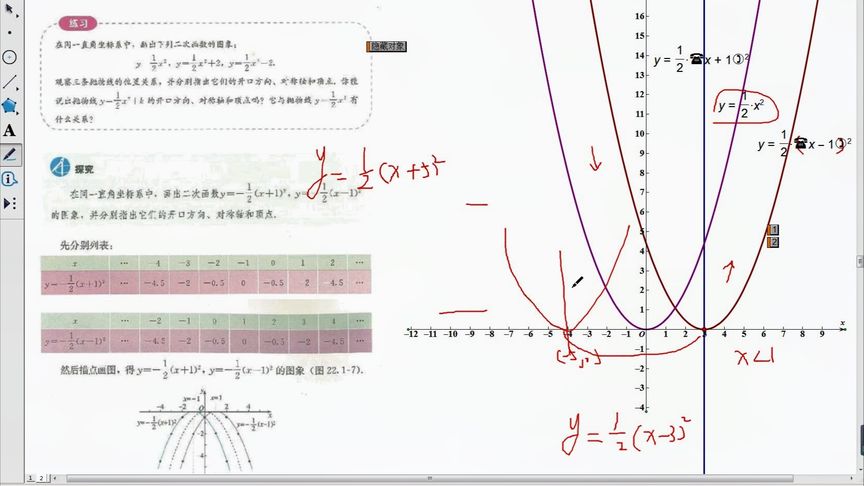 练习
在同一直角坐标系中,画出下列二次函数的图象:
y=1/2x²,y=1/2x²+2,y=1/2x²-2.
观察三条抛物线的位置关系,并分别指出它们的开口方向、对称轴和顶点.你能
说出抛物线y=1/2x²+k的开口方向、对称轴和顶点吗?它与抛物线y=1/2x²有
什么关系?
隐藏对象
探究
在同一直角坐标系中,画出二次函数y=-1/2(x+1)²,y=-1/2(x-1)²
的图象,并分别指出它们的开口方向、对称轴和顶点.
先分别列表:
x … -4 -3 -2 -1 0 1 2 …
y=-1/2(x+1)² … -4.5 -2 -0.5 0 -0.5 -2 -4.5 …
x … -2 -1 0 1 2 3 4 …
y=-1/2(x-1)² … -4.5 -2 -0.5 0 -0.5 -2 -4.5 …
然后描点画图,得y=-1/2(x+1)²,y=-1/2(x-1)²的图象(图 22.1-7).
x=-1 x=1
y
-4 -2 O 2 4 x
-2
-4
y=-1/2(x+1)² y=-1/2(x-1)²
y=1/2(x+3)²
y = 1/2·☎x + 1②²
y = 1/2·x²
y = 1/2·☎x − 1②²
16
15
14
13
12
11
10
9
8
7
6
5
4
3
2
1
-12 -11 -10 -9 -8 -7 -6 -5 -4 -3 -2 -1 0 1 2 3 4 5 6 7 8 9 x
-1
-2
-3
-4
1
2
x<1
y=1/2(x-3)²
A
1 2